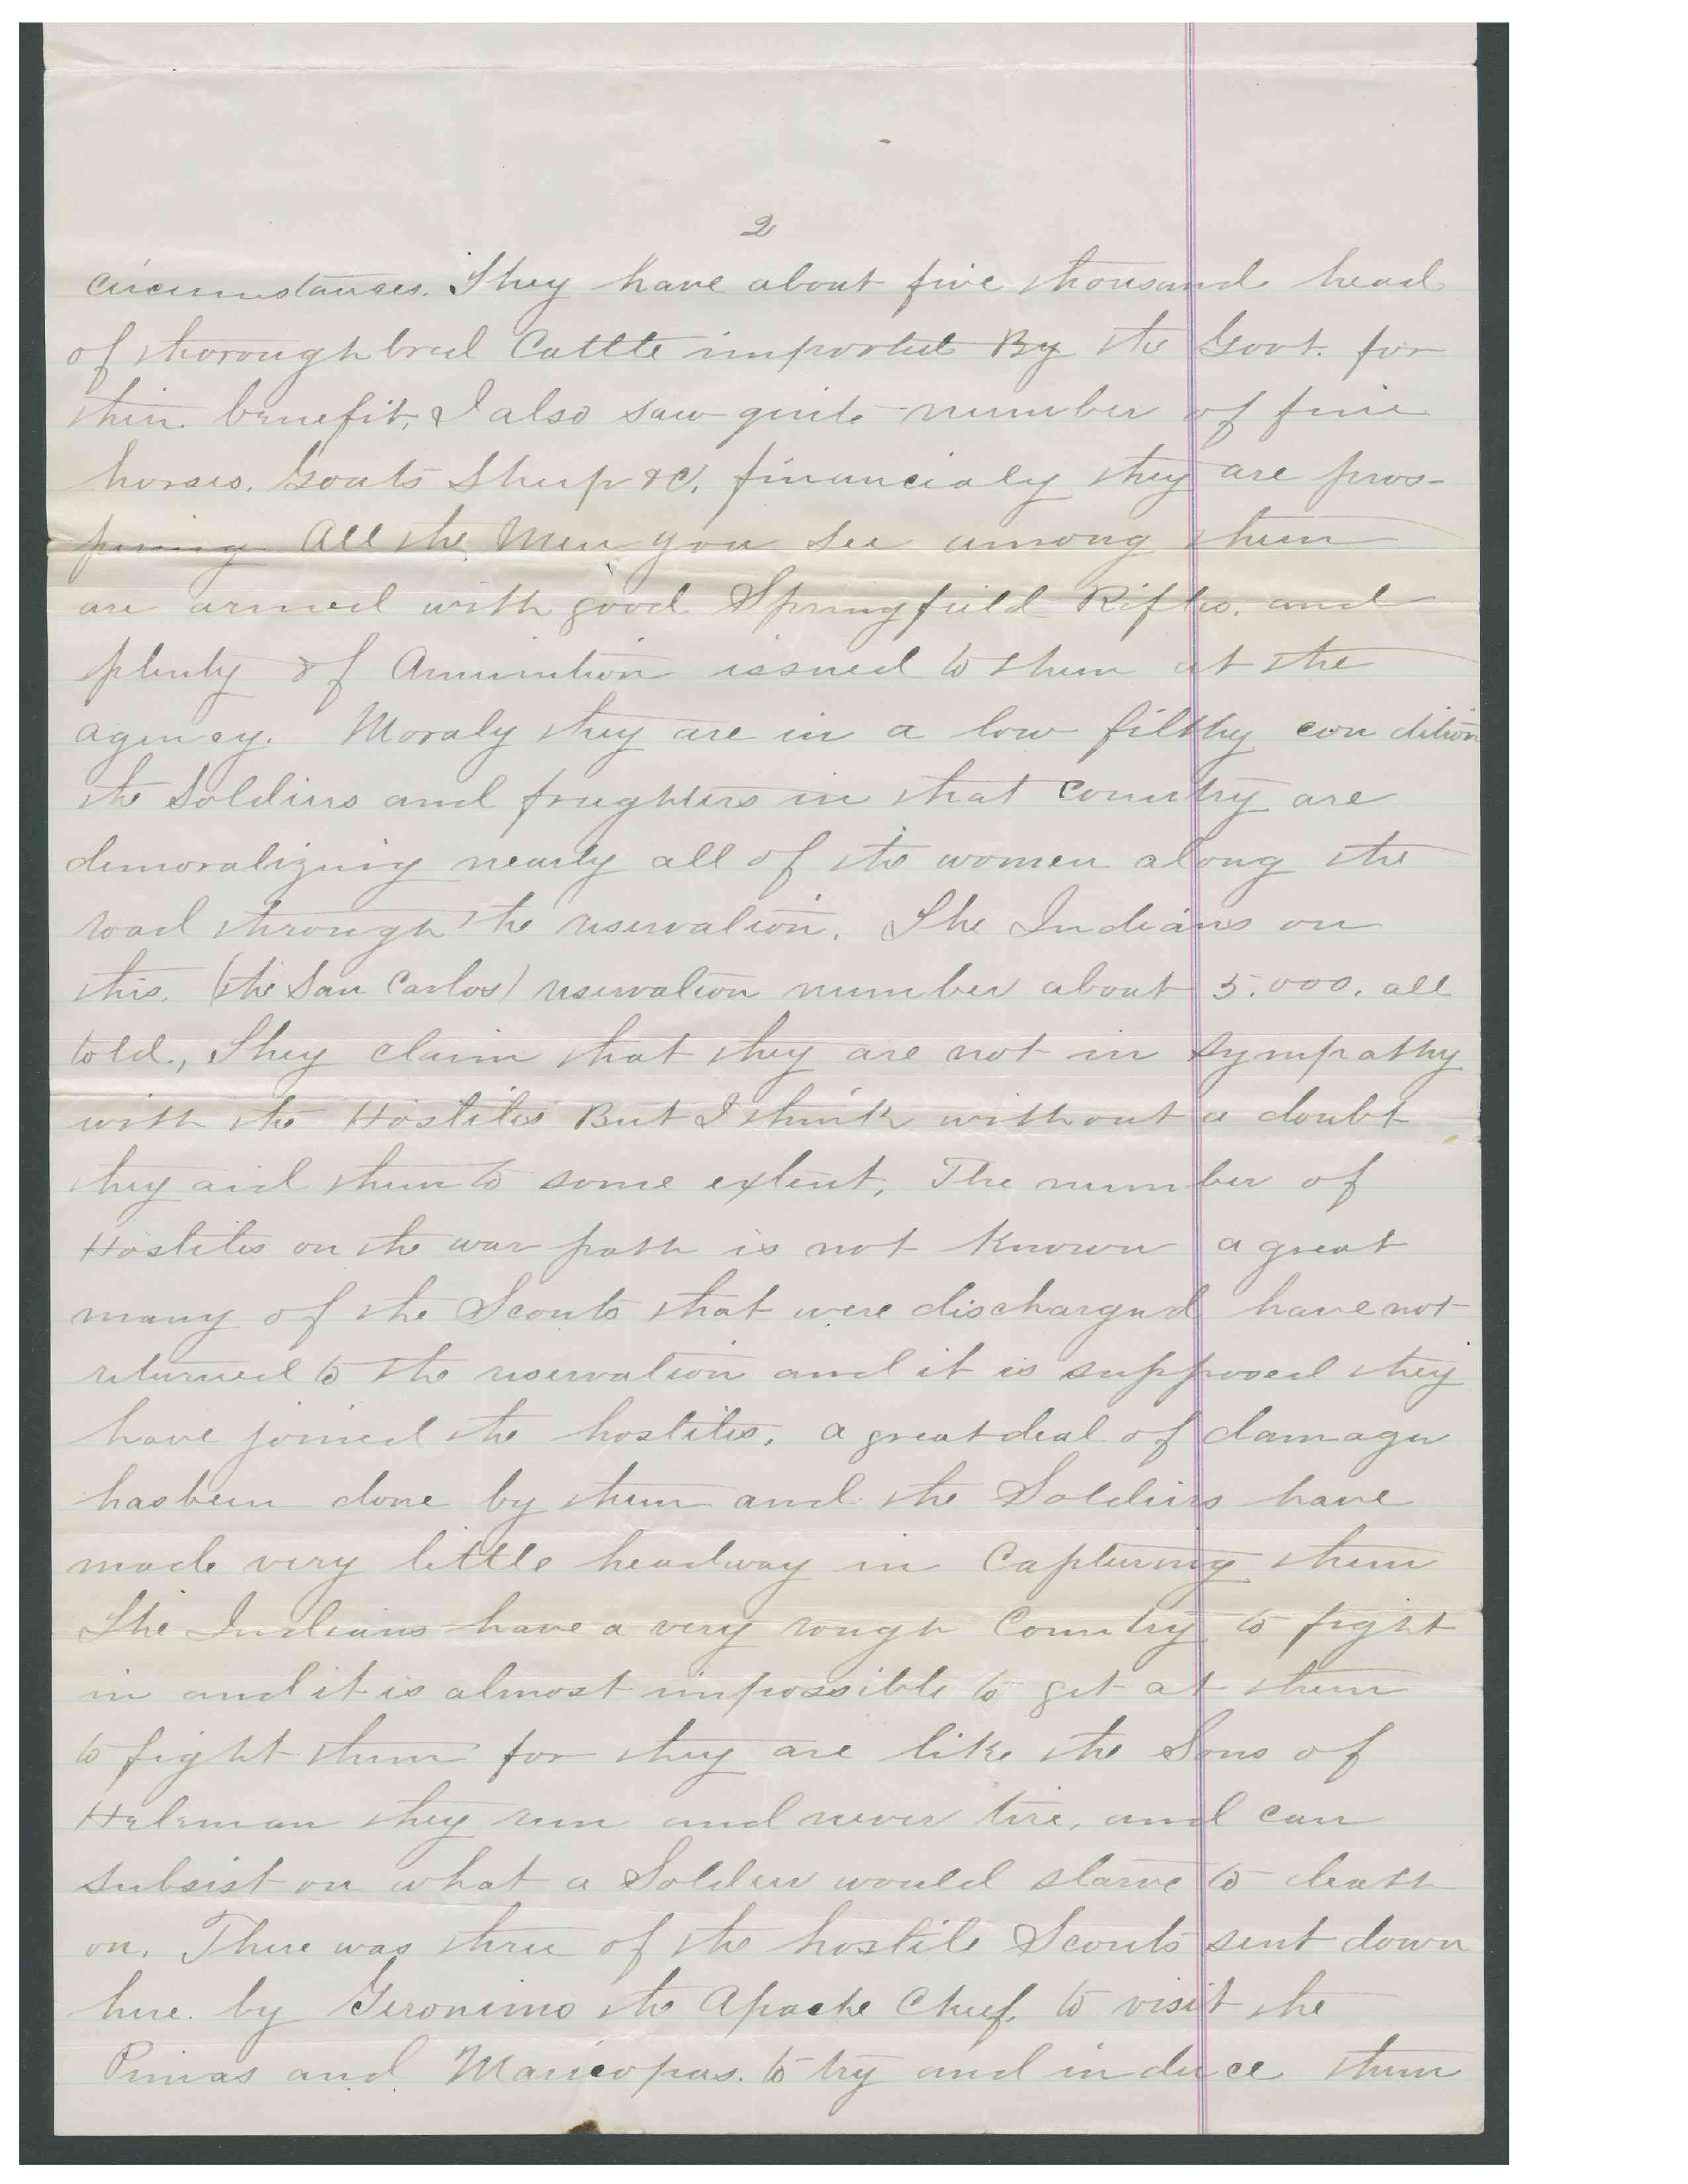 2
circumstances. They have about five thousand head
of thoroughbred Cattle imported By the Govt. for
their benefit, I also saw quite number of fine
horses. Goats Sheep &c, financialy they are pros-
pering All the Men you see among them
are armed with good Springfield Rifles. and
plenty of Amunition issued to them at the
agency. Moraly they are in a low filthy condition
the Soldiers and freighters in that Country are
demoralizing nearly all of the women along the
road through the reservation. The Indians on
this. (the San Carlos) reservation number about 5.000. all
told., They claim that they are not in Sympathy
with the Hostiles But I think without a doubt
they aid them to some extent. The number of
Hostiles on the war path is not Known a great
many of the Scouts that were discharged have not
returned to the reservation and it is supposed they
have joined the hostiles. a great deal of damage
has been done by them and the Soldiers have
made very little headway in Capturing them
The Indians have a very rough Country to fight
in and it is almost impossible to get at them
to fight them for they are like the Sons of
Heleman they run and never tire, and can
subsist on what a Soldier would starve to death
on. There was three of the hostile Scouts sent down
here. by Geronimo the Apache Chief. to visit the
Pimas and Maricopas. to try and induce them